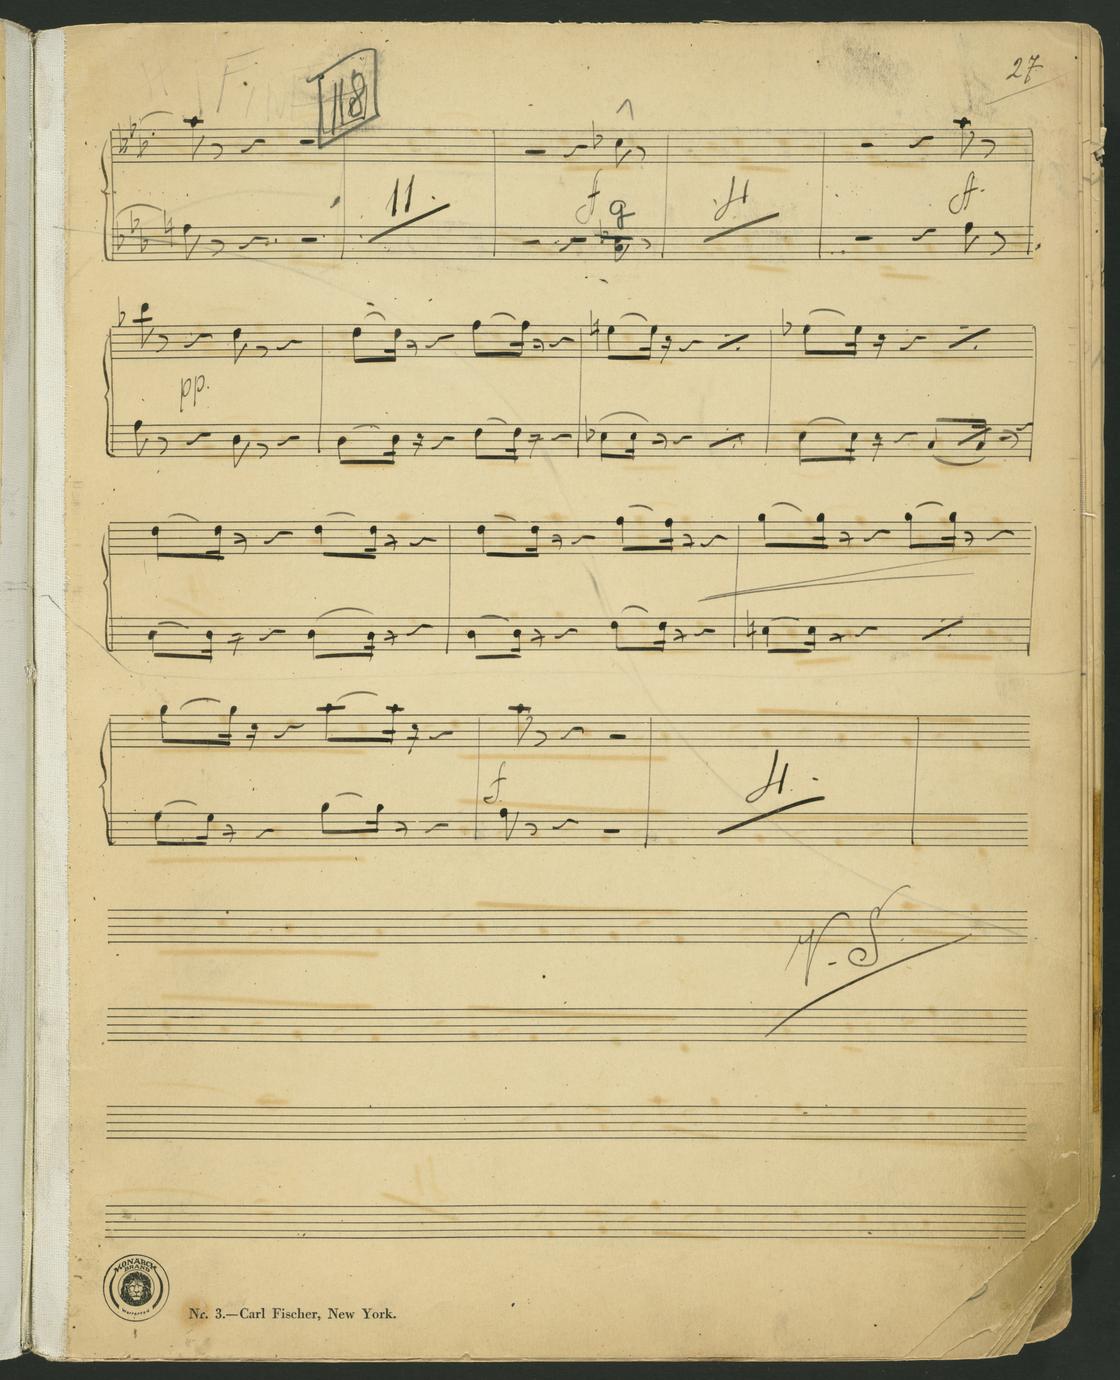 27
FINE
118
11.
f g 4 f.
pp.
f. 4.
V. S.
MONARCH
BRAND
Warranted
Nr. 3.—Carl Fischer, New York.